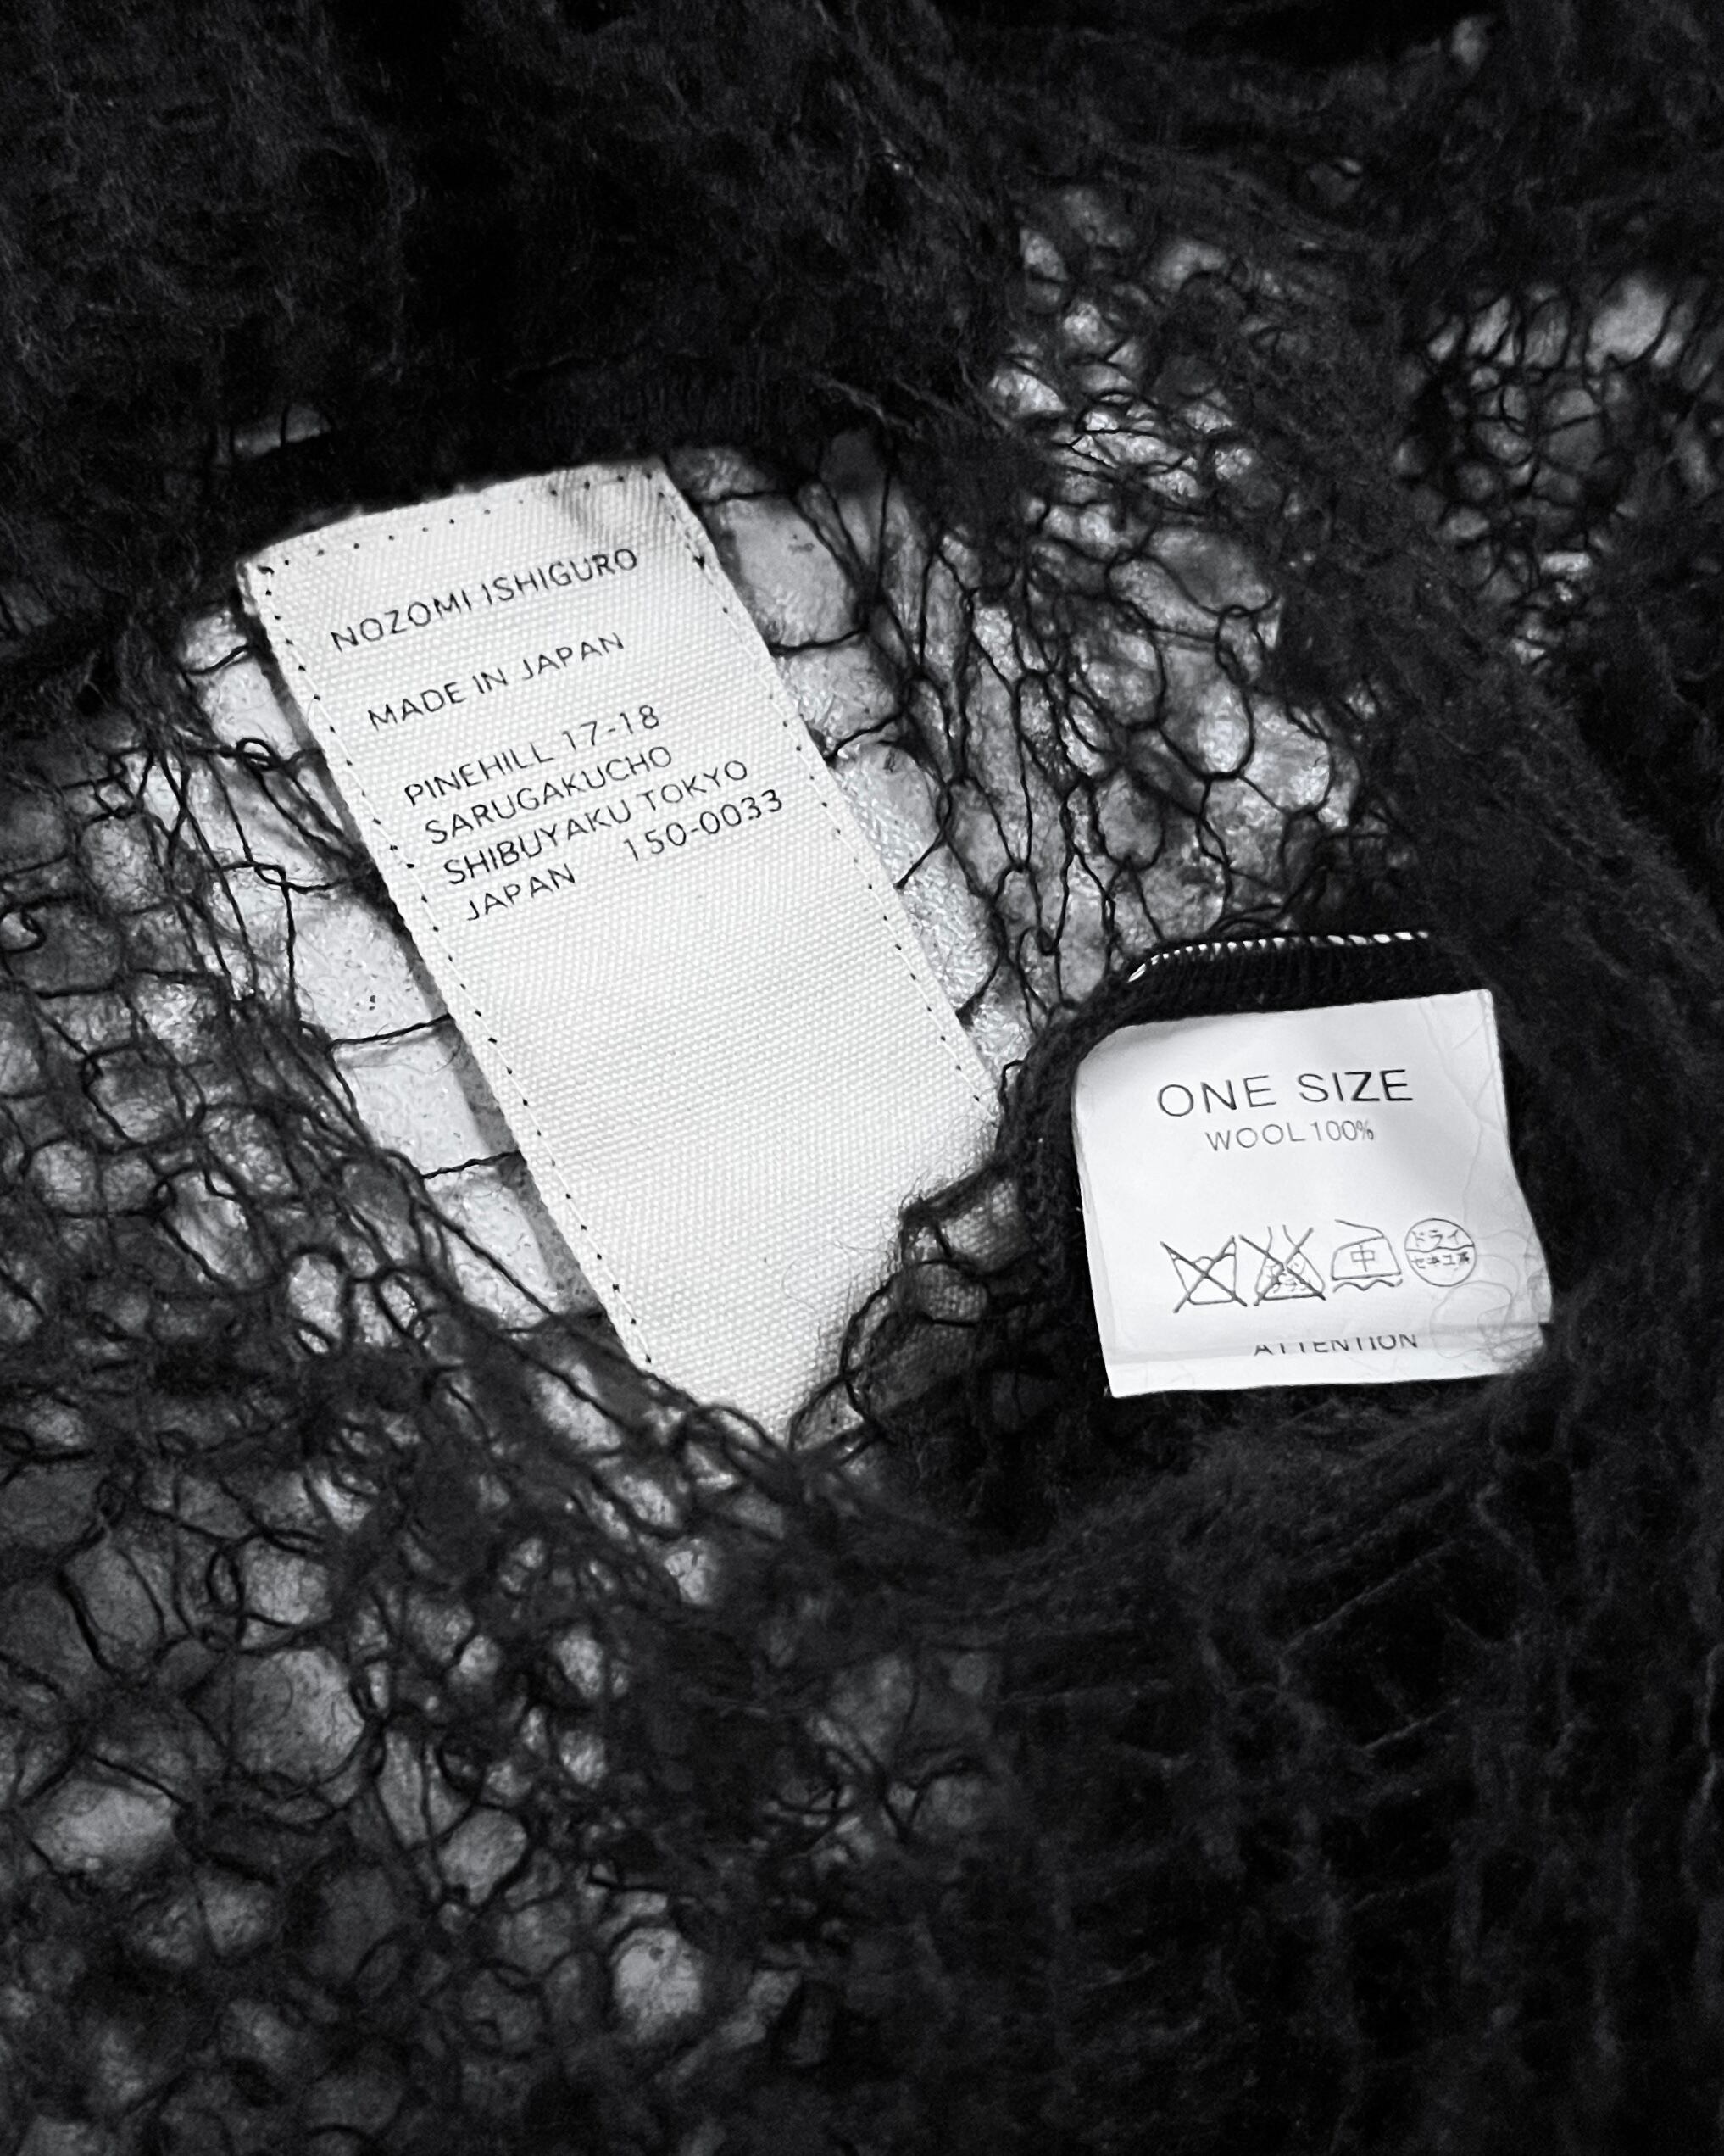 NOZOMI ISHIGURO
MADE IN JAPAN
PINEHILL 17-18
SARUGAKUCHO
SHIBUYAKU TOKYO
JAPAN 150-0033
ONE SIZE
WOOL100%
中
ドライ
セキユ系
ATTENTION